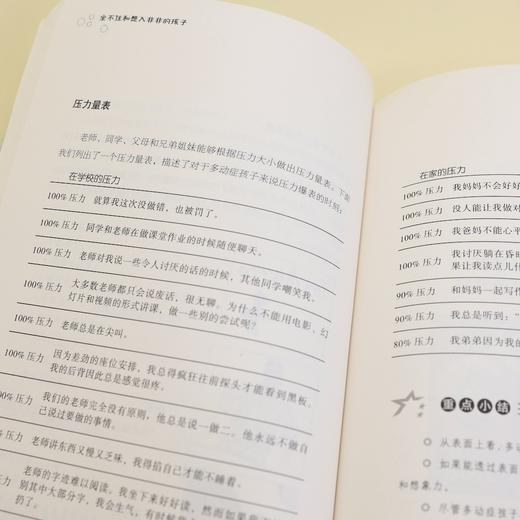 坐不住和想入非非的孩子
压力量表
老师、同学、父母和兄弟姐妹能够根据压力大小做出压力量表。下面
我们列出了一个压力量表,描述了对于多动症孩子来说压力爆表的时刻:
在学校的压力
100% 压力 就算我这次没做错,也被罚了。
100% 压力 同学和老师在做课堂作业的时候随便聊天。
100% 压力 老师对我说一些令人讨厌的话的时候,其他同学嘲笑我。
100% 压力 大多数老师都只会说废话,很无聊。为什么不能用电影、幻
灯片和视频的形式讲课,做一些别的尝试呢?
100% 压力 老师总是在尖叫。
100% 压力 因为差劲的座位安排,我总得疯狂往前探头才能看到黑板。
我的后背因此总是感觉很疼。
90% 压力 我们的老师完全没有原则,他总是说一做二。他永远不做自
己说过要做的事情。
压力 老师讲东西又慢又乏味,我得掐自己才能不睡着。
压力 老师的字迹难以阅读,我坐下来好好读,然而
别其中大部分字,我会生气,有时候
扔了。
在家的压力
100% 压力 我妈妈不会好好
100% 压力 没人能让我做对
100% 压力 我爸妈不能心平
100% 压力 我讨厌躺在昏暗
果让我读点儿什
100% 压力 和妈妈一起写作
90% 压力 我总是听到:“
80% 压力 我弟弟因为我的
重点小结
○ 从表面上看,多动
○ 如果能透过表面
和想象力。
○ 尽管多动症孩子